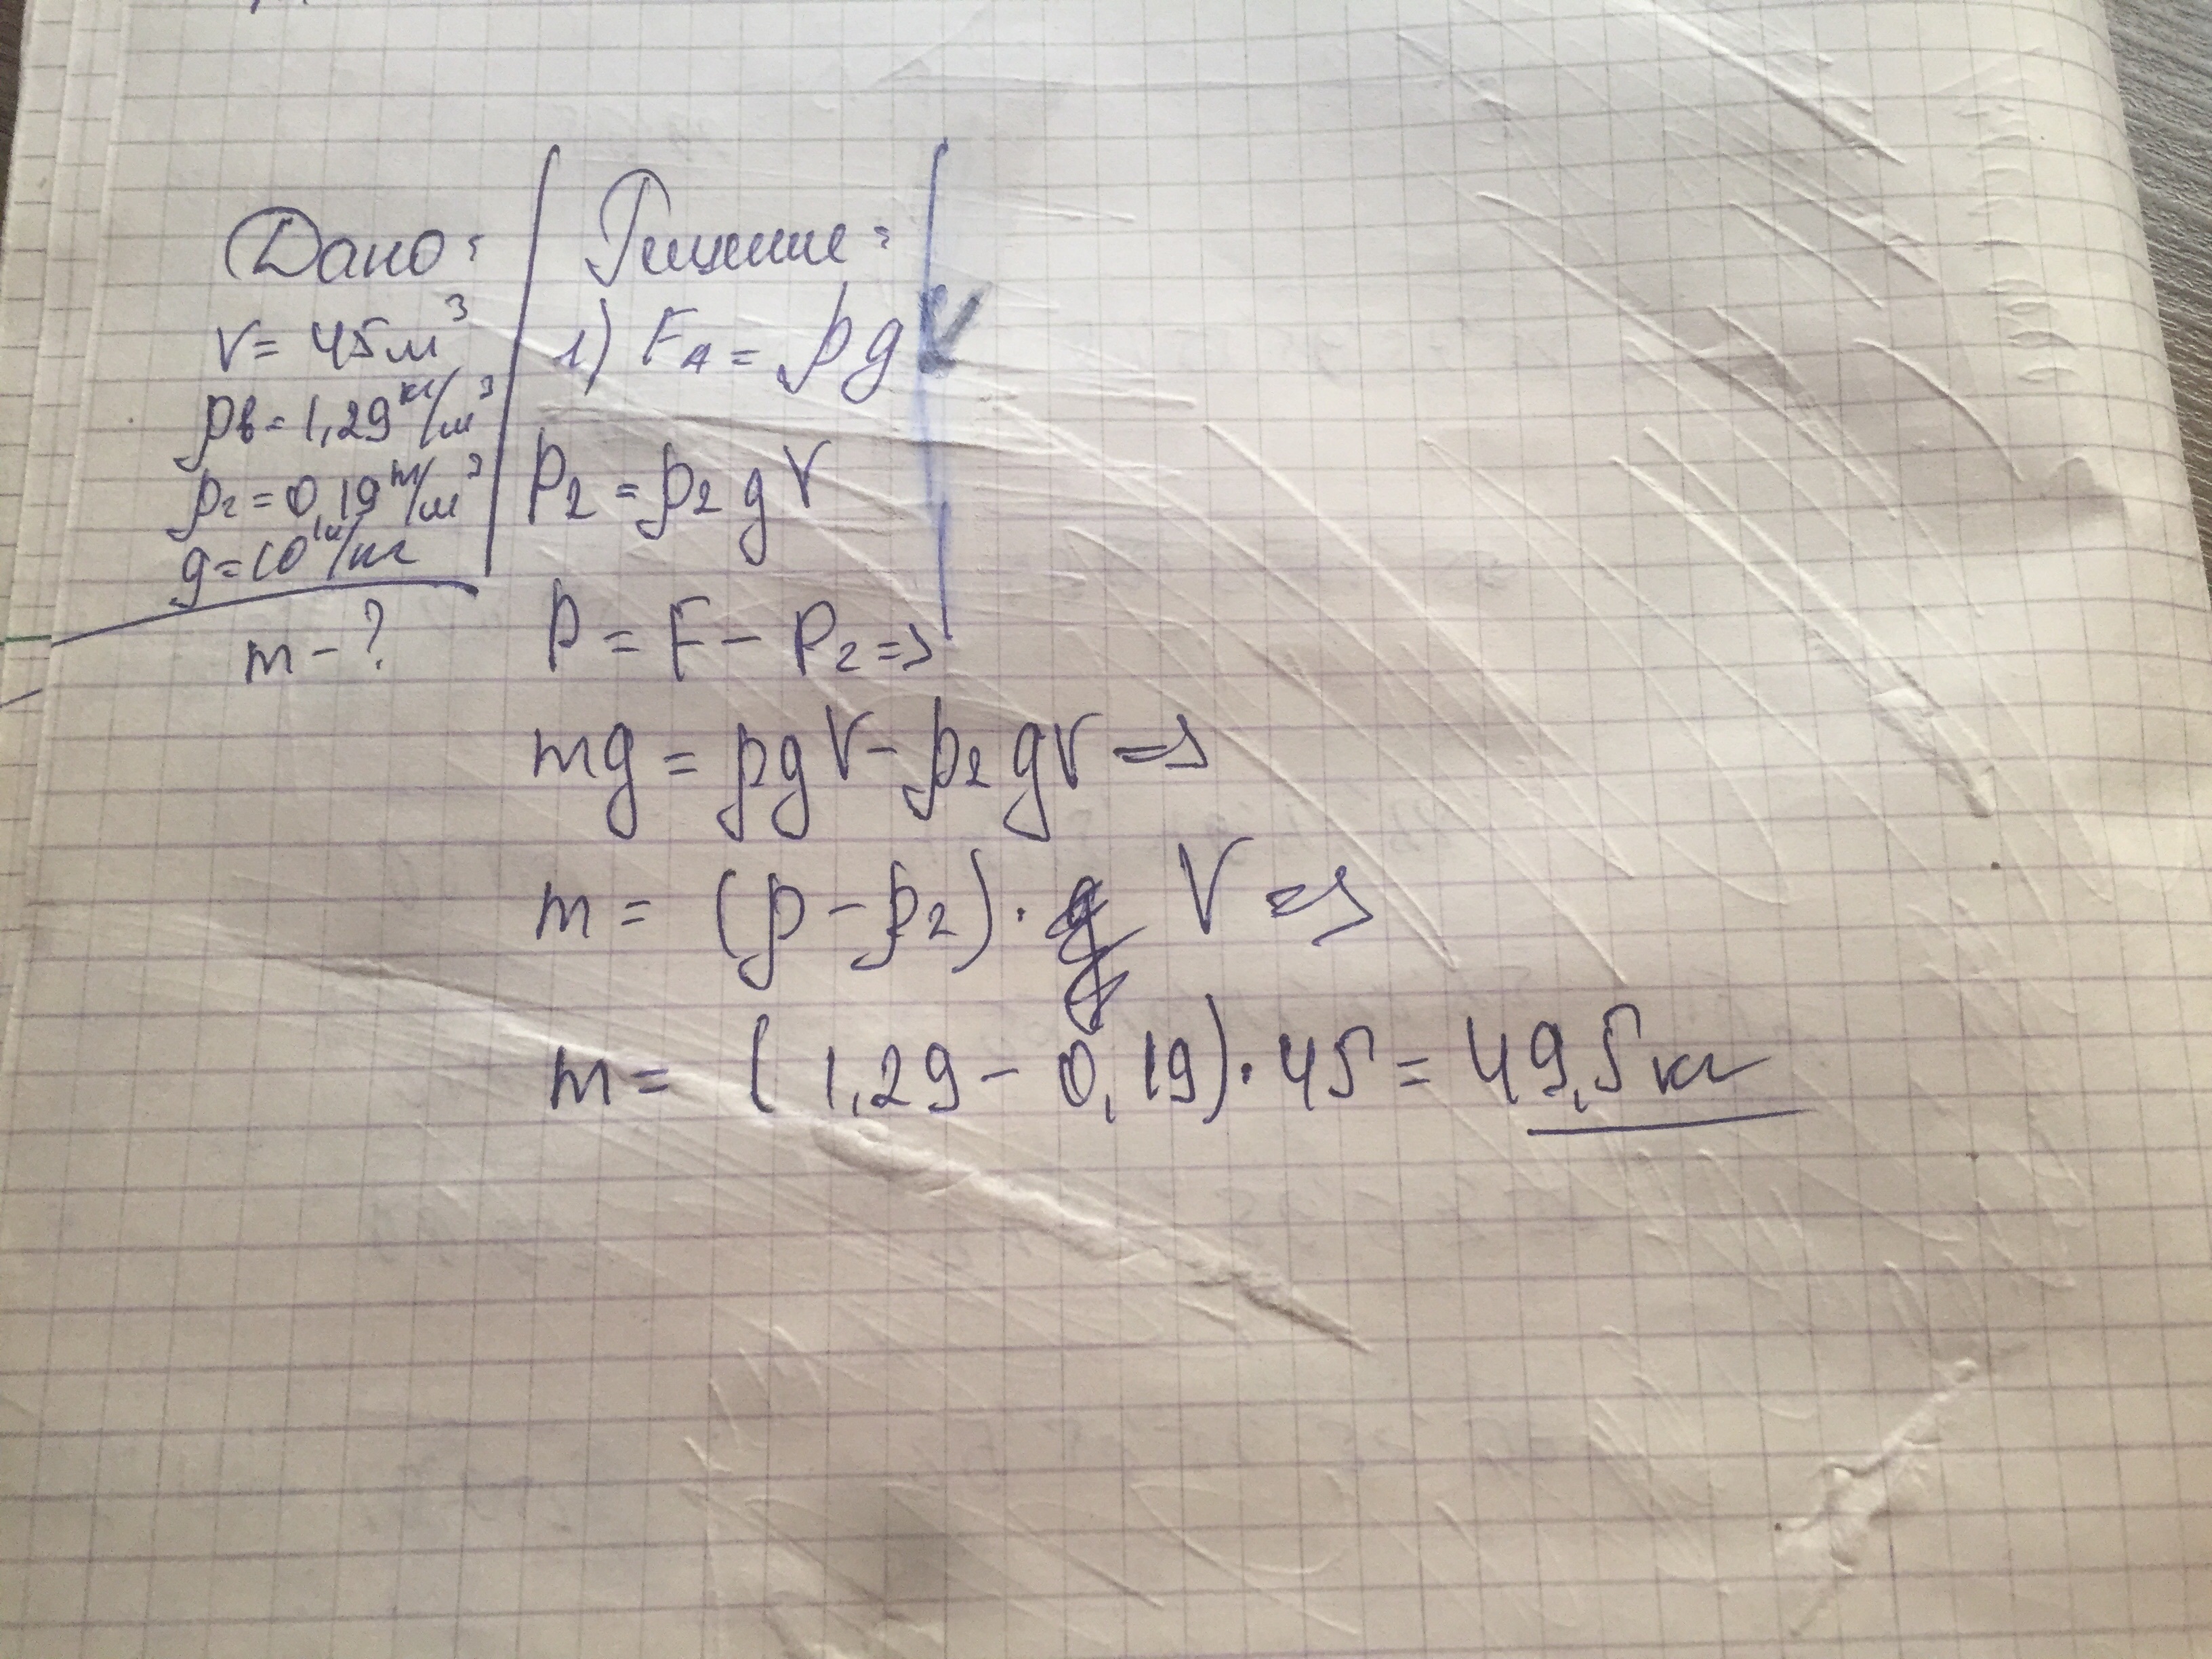 Дано:
V = 45 м³
ρв = 1,29 кг/м³
ρг = 0,19 кг/м³
g = 10 н/кг
m - ?
Решение:
1) FА = ρgV
P2 = ρ2 gV
P = F - P2 =>
mg = ρgV - ρ2 gV =>
m = (ρ - ρ2) · V =>
m = (1,29 - 0,19) · 45 = 49,5 кг